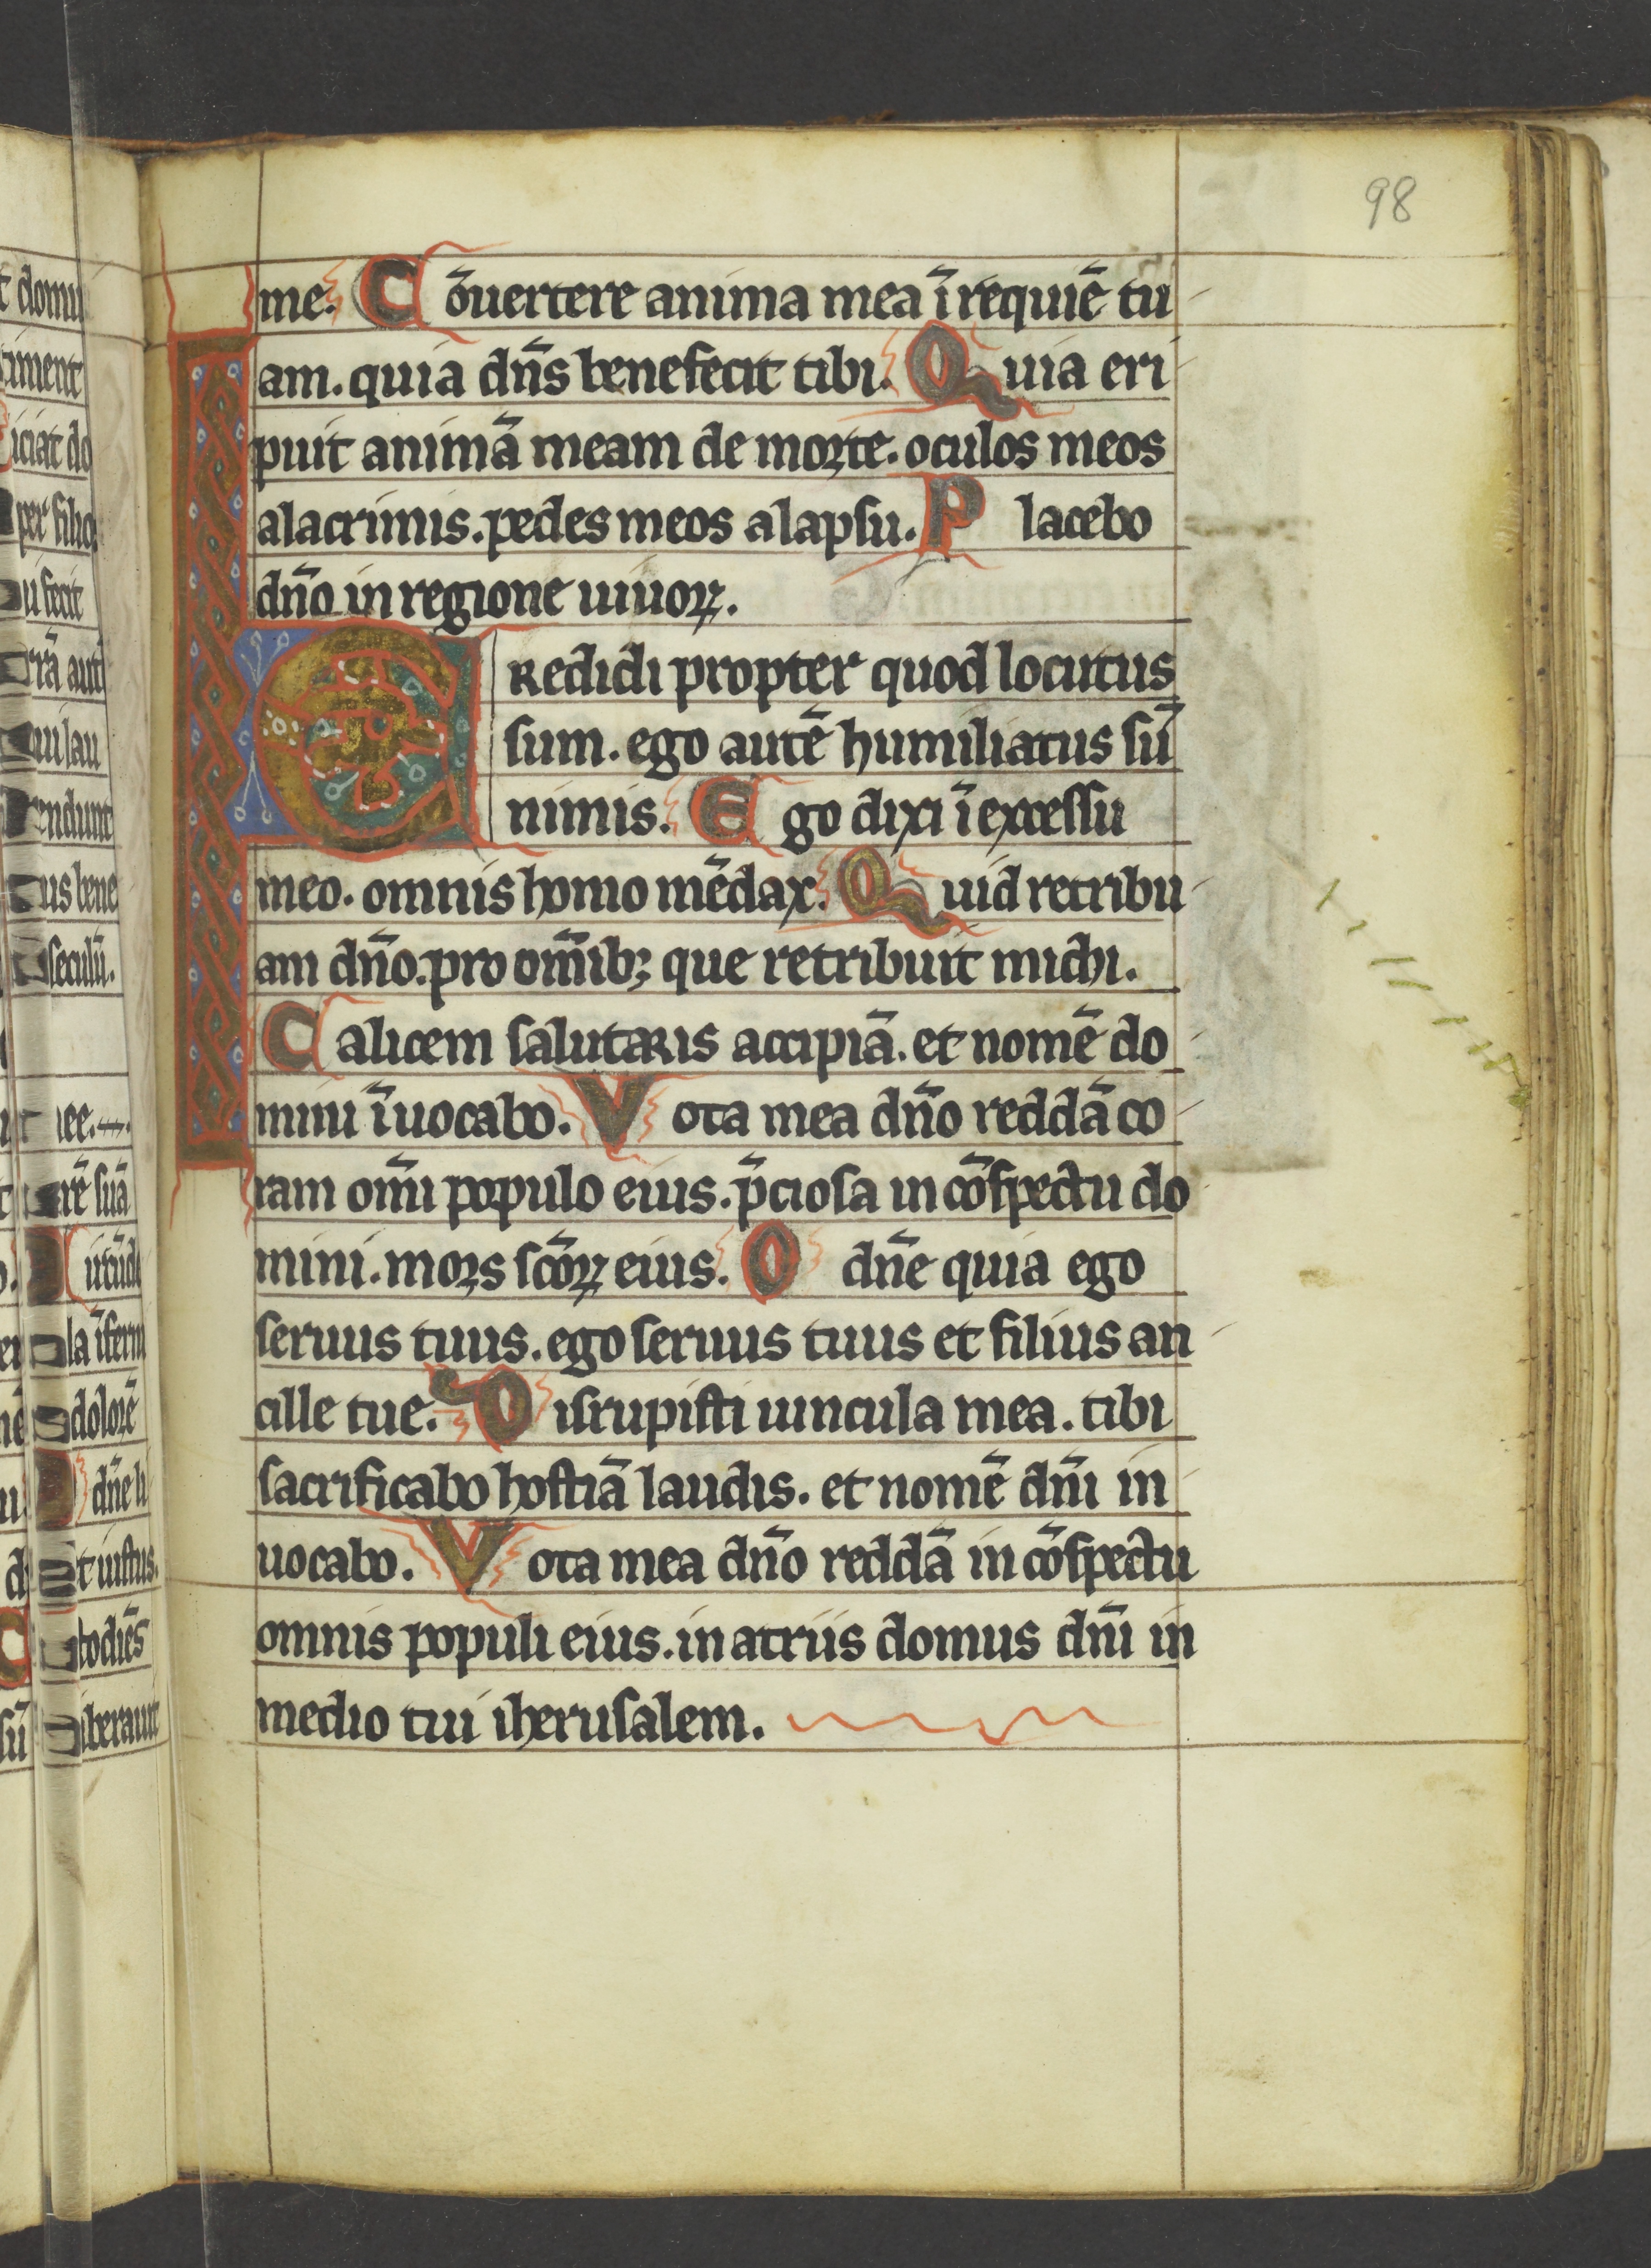 98
me. Cōuertere anima mea ī requiē tu
am. quia dn̄s benefecit tibi. Quia eri
puit animā meam de morte. oculos meos
alacrimis. pedes meos alapsu. Placebo
dn̄o in regione uiuoꝝ.
CRedidi propter quod locutus
sum. ego autē humiliatus sū
nimis. Ego dixi ī excessu
meo. omnis homo mēdax. Quid retribu
am dn̄o. pro om̄ibꝫ que retribuit michi.
Calicem salutaris accipiā. et nomē do
mini īuocabo. Vota mea dn̄o reddā co
ram om̄i populo eius. p̄ciosa in cōspectu do
mini. mors sc̄oꝝ eius. O dn̄e quia ego
seruus tuus. ego seruus tuus et filius an
cille tue. Disrupisti uincula mea. tibi
sacrificabo hostiā laudis. et nomē dn̄i in
uocabo. Vota mea dn̄o reddā in cōspectu
omnis populi eius. in atriis domus dn̄i in
medio tui iherusalem.